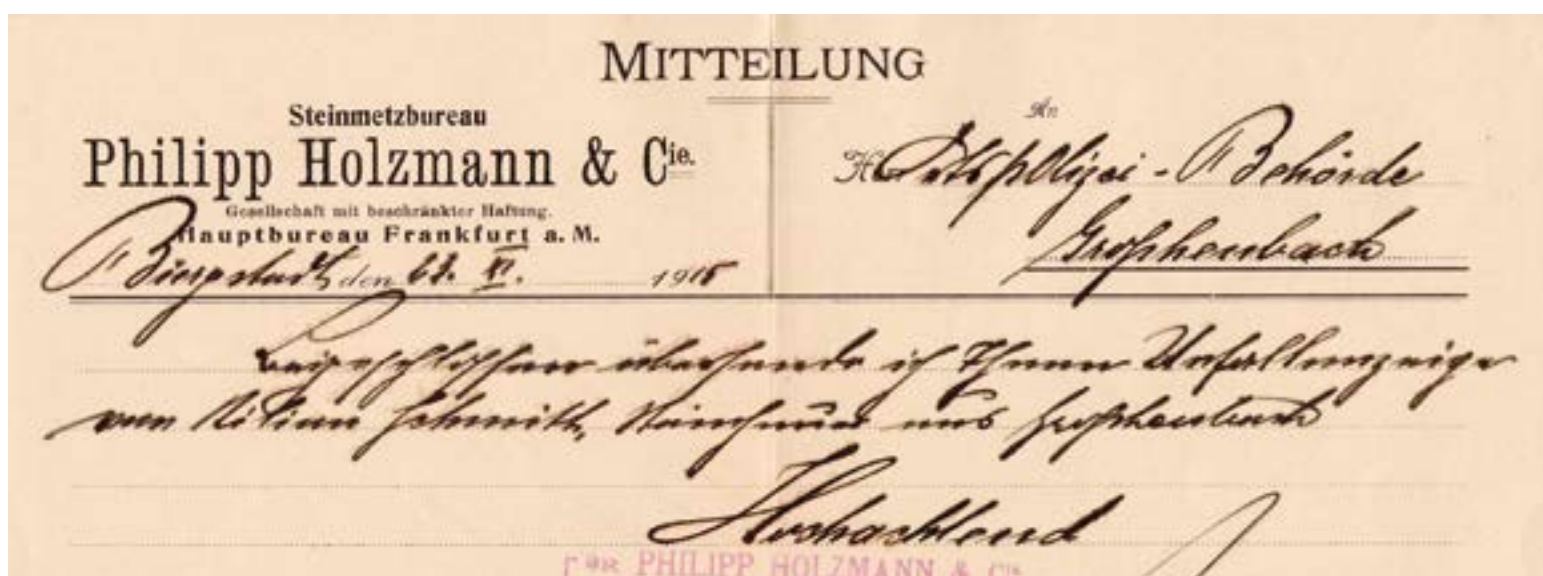 MITTEILUNG
Steinmetzbureau
Philipp Holzmann & Cie.
Gesellschaft mit beschränkter Haftung.
Hauptbureau Frankfurt a. M.
Bürgstadt, den XI. 1915
An
Ortspolizei - Behörde
Großheubach
Beigeschlossen übersende ich Ihnen Unfallanzeige
von Kilian Schmitt, Steinhauer aus Großheubach
Hochachtend
PHILIPP HOLZMANN & Cie.